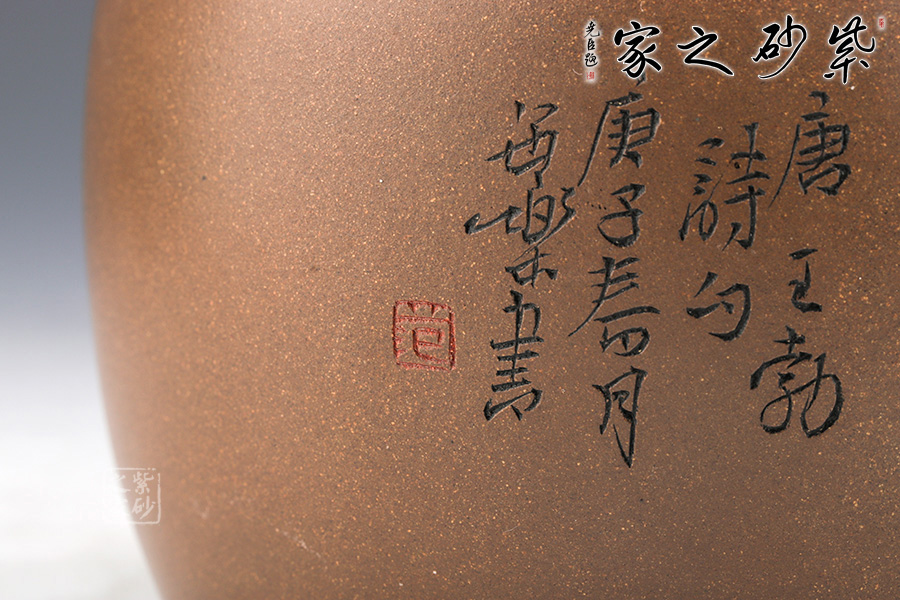 紫砂之家
尧臣题
唐王勃
詩句
庚子春月
書
紫砂